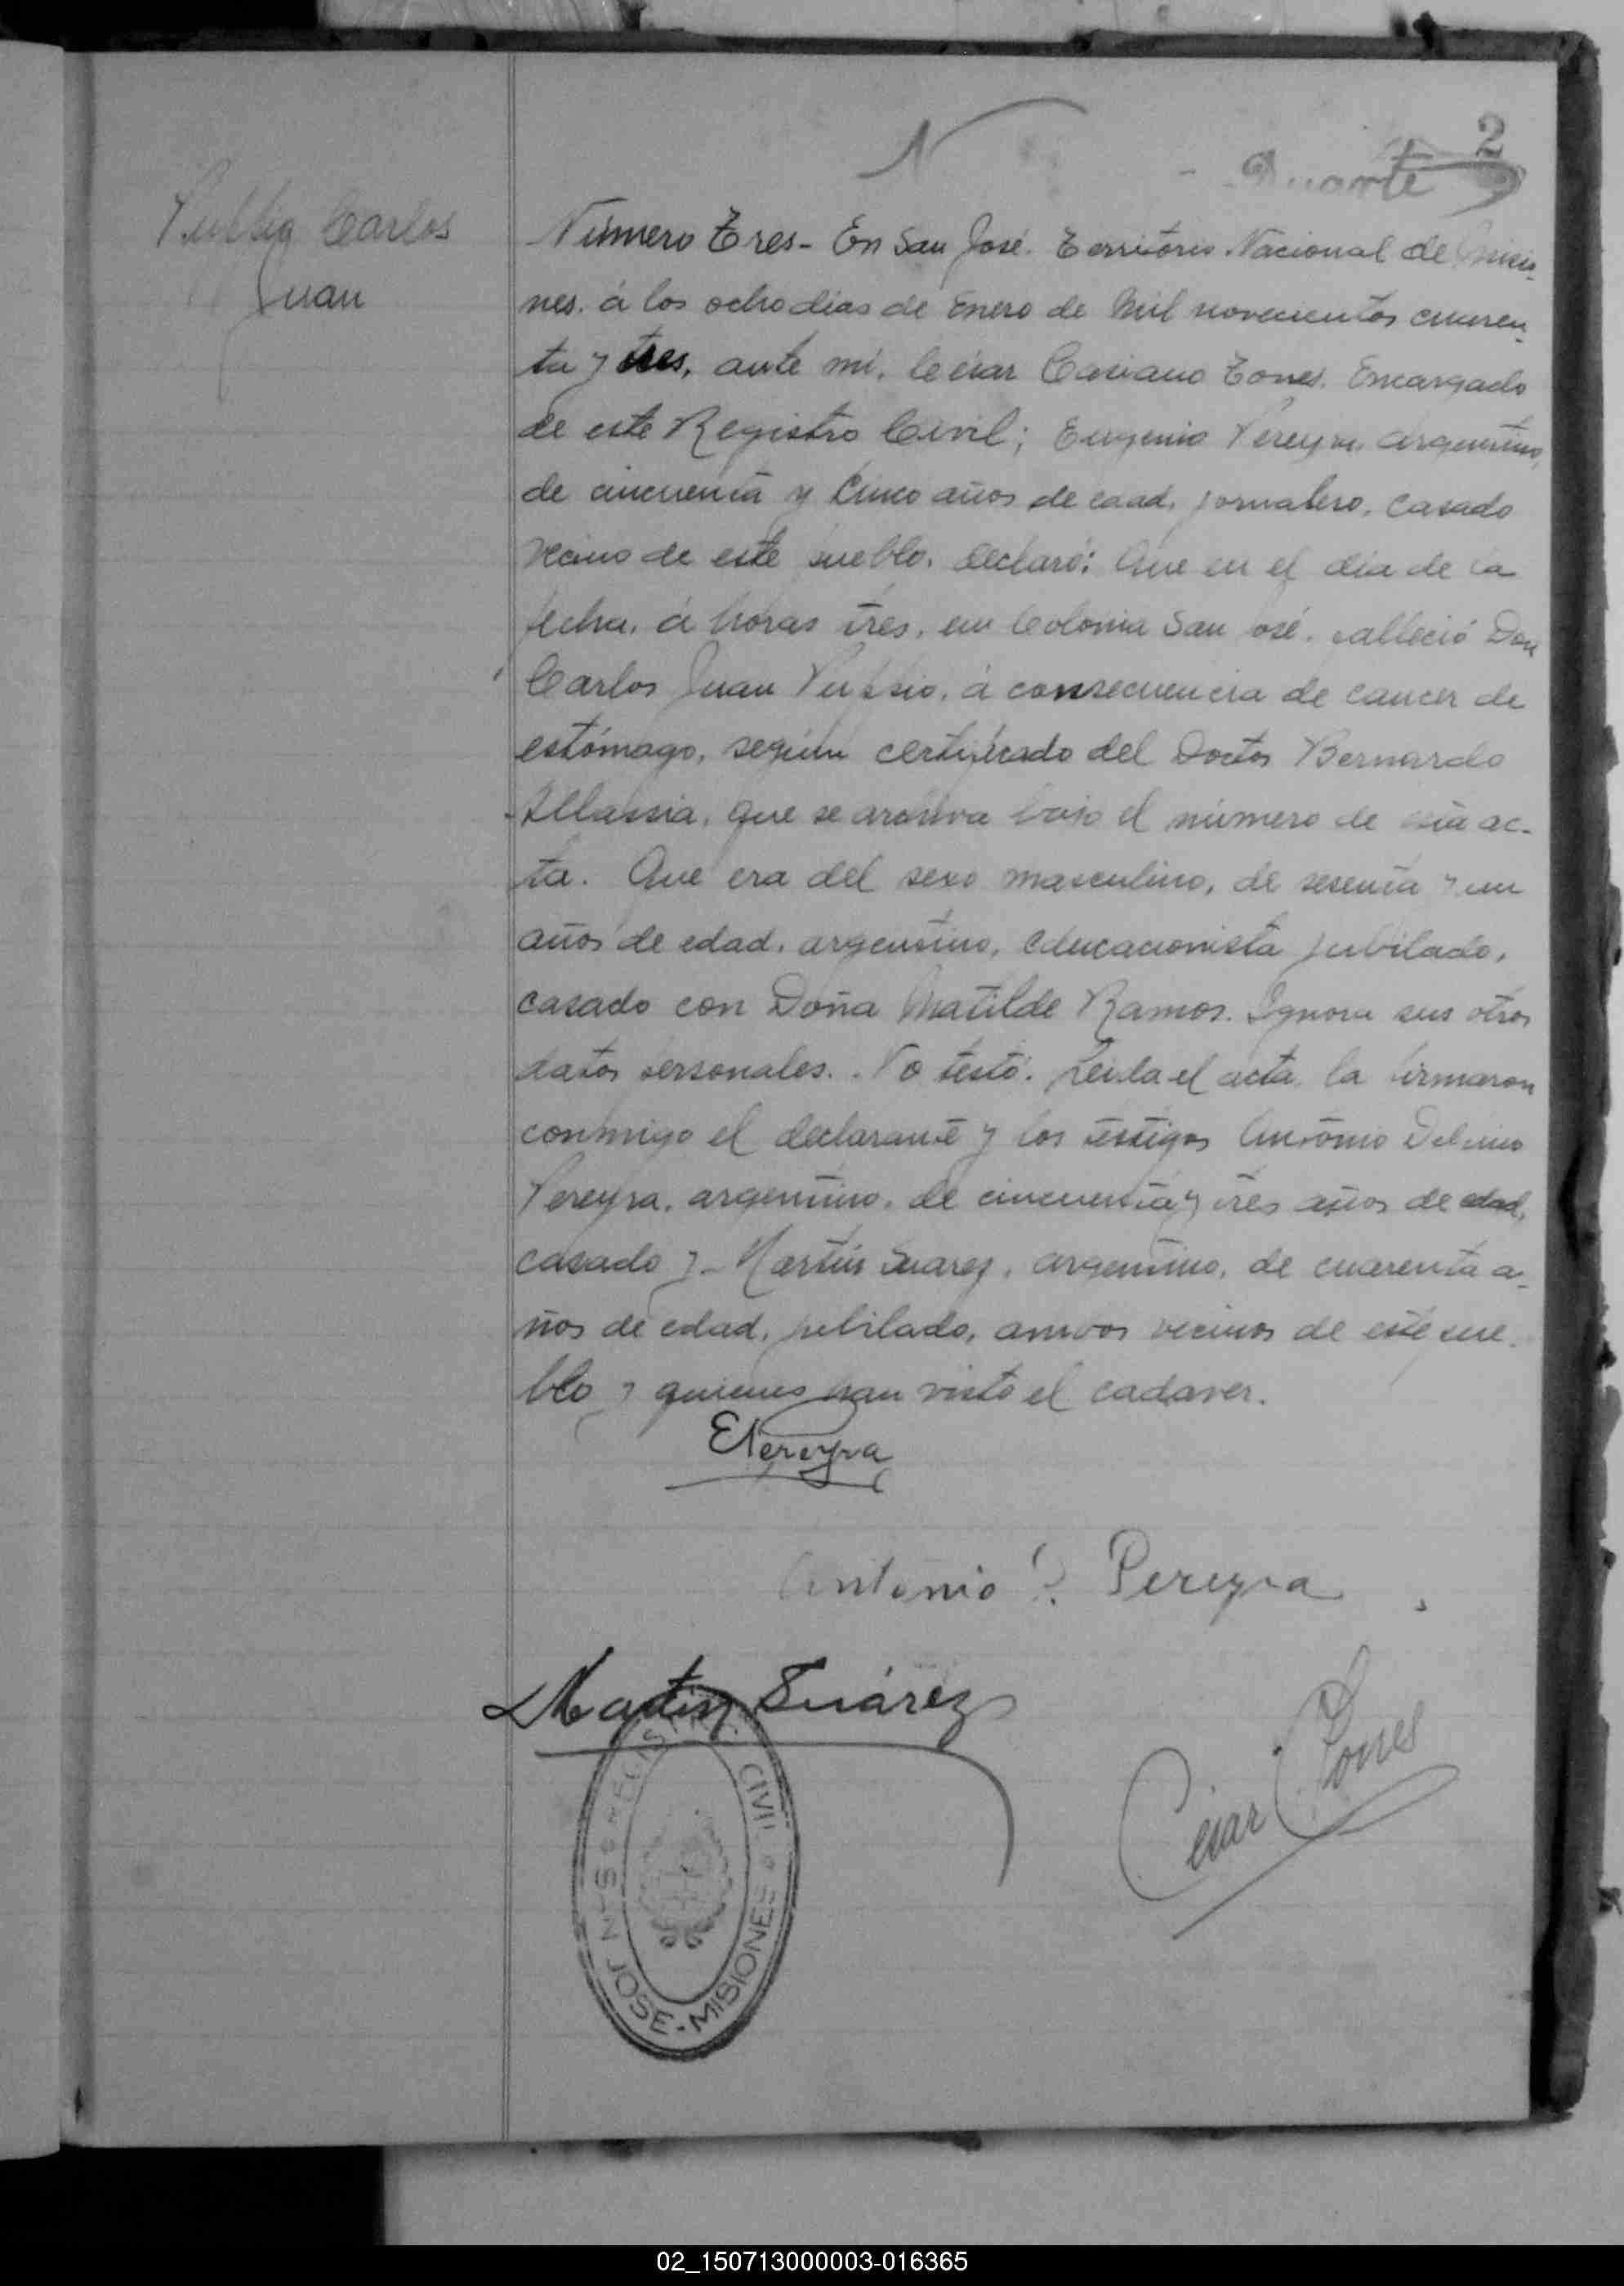 2
Duarte
Carlos
Juan
Número Tres- En San José. Territorio Nacional de Misio-
nes. á los ocho dias de Enero de Mil novecientos cuaren-
ta y tres, ante mí, César Casiano Torres. Encargado
de este Registro Civil; Eugenio Pereyra, argentino,
de cincuenta y cinco años de edad, jornalero, casado
vecino de este pueblo, declaró: Que en el día de la
fecha, á horas tres, en Colonia San José. falleció Don
Carlos Juan á consecuencia de cancer de
estómago, según certificado del Doctor Bernardo
que se archiva bajo el número de esta ac-
ta. Que era del sexo masculino, de sesenta y un
años de edad, argentino, educacionista jubilado,
casado con Doña Matilde Ramos. Ignora sus otros
datos personales. No testó. Leída el acta, la firmaron
conmigo el declarante y los testigos Antonio
Pereyra, argentino, de cincuenta y tres años de edad,
casado y- Martín Suarez, argentino, de cuarenta a-
ños de edad, jubilado, ambos vecinos de este pue-
blo y quienes han visto el cadaver.
EPereyra
Antonio Pereyra
Martin Suárez
César Torres
REGISTRO CIVIL
SAN JOSE - MISIONES
02_150713000003-016365